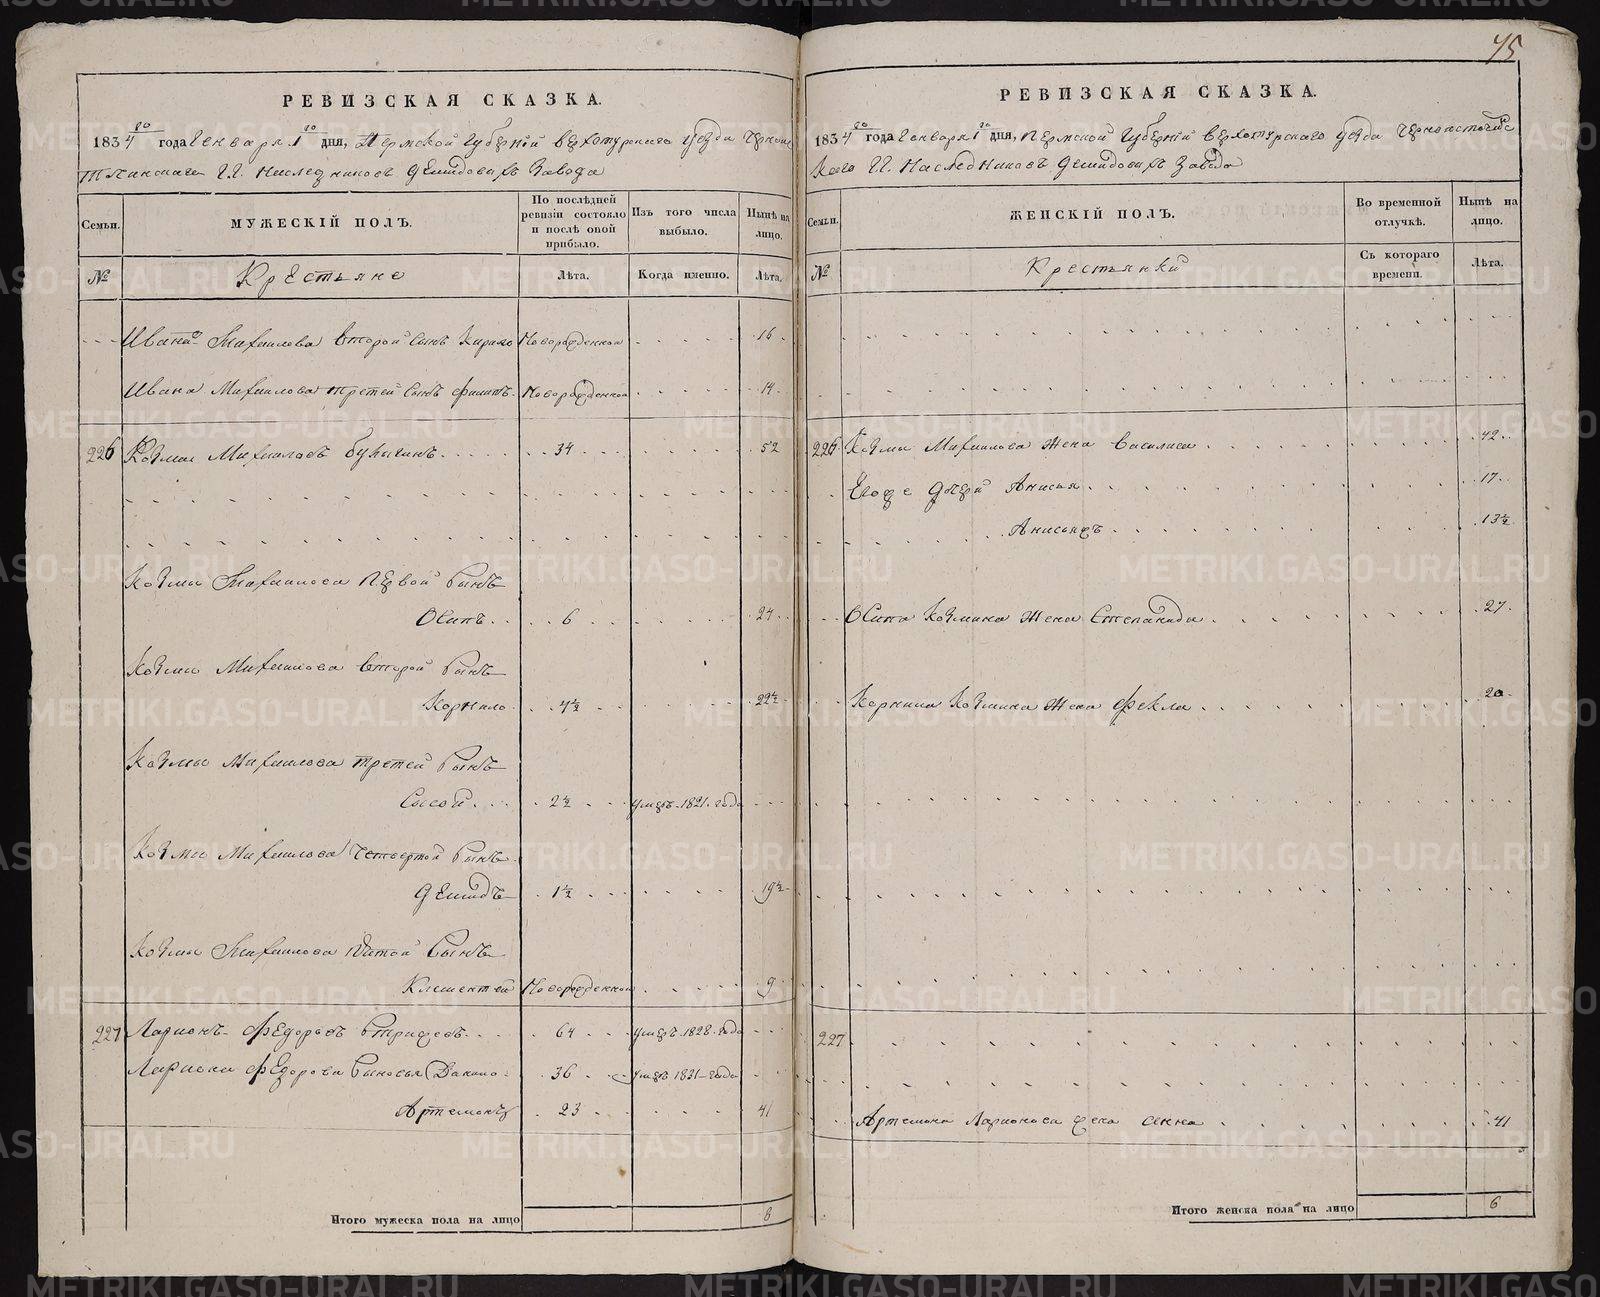 75
РЕВИЗСКАЯ СКАЗКА.
1834 года Генваря 1 дня, Пермской Губернiй Верхотурскаго уезда Черноис
точинскаго Г.Г. Наследниковъ Демидовыхъ Завода
Семьи. МУЖЕСКIЙ ПОЛЪ. По послѣдней ревизiи состояло и послѣ оной прибыло. Изъ того числа выбыло. Нынѣ на лицо.
№ Крестьяне Лѣта. Когда именно. Лѣта.
Ивана Михаилова второй сынъ Кирило Новорожденной 16
Ивана Михаилова третей сынъ Филипъ Новорожденной 14
226 Козма Михаиловъ 34 52
Козмы Михаилова первой сынъ
Осипъ 6 24
Козмы Михаилова второй сынъ
Корнило 4½ 22½
Козмы Михаилова третей сынъ
Сысой 2½ умеръ 1821 года
Козмы Михаилова четвертой сынъ
Демидъ 1½ 19½
Козмы Михаилова пятой сынъ
Клементей Новорожденной 9
227 Ларионъ Федоровъ 64 умеръ 1828 года
Лариона Федорова сыновья 36 умеръ 1831 года
Артемонъ 23 41
Итого мужеска пола на лицо 8
РЕВИЗСКАЯ СКАЗКА.
1834 года Генваря 1 дня, Пермской Губернiй Верхотурскаго уезда Черноисточинс
каго Г.Г. Наследниковъ Демидовыхъ Завода
Семьи. ЖЕНСКIЙ ПОЛЪ. Во временной отлучкѣ. Нынѣ на лицо.
№ Крестьянки Съ котораго времени. Лѣта.
226 Козмы Михаилова жена Василиса 42
Егоже дочери Анисья 17
13½
Осипа Козмина жена Степанида 27
Корнила Козмина жена Фекла 20
227
Артемона Ларионова жена Анна 41
Итого женска пола на лицо 6
METRIKI.GASO-URAL.RU